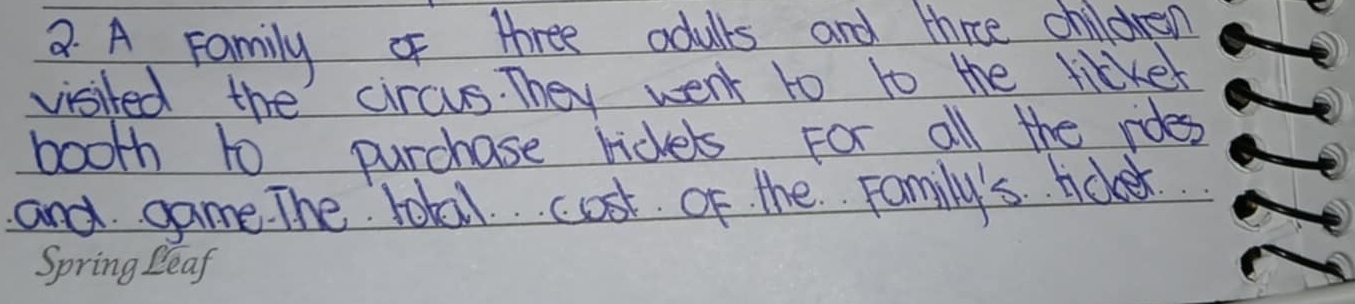 2. A Family OF three adults and three children
visited the circus. They went to to the ticket
booth to purchase tickets For all the rides
and game. The total cost OF the Family's ticket
Spring Leaf